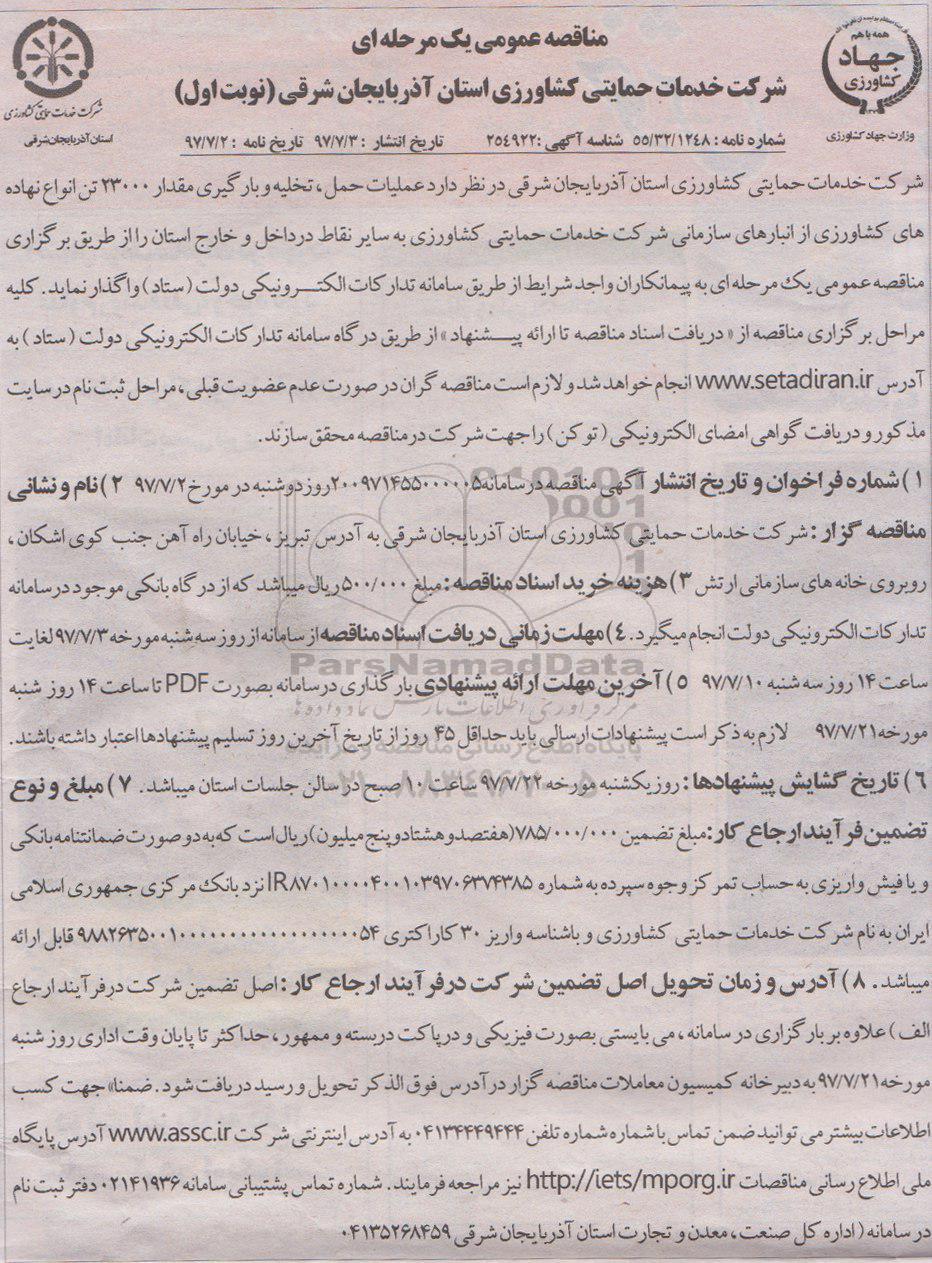 مناقصه عمومی یک مرحله ای
شرکت خدمات حمایتی کشاورزی استان آذربایجان شرقی (نوبت اول)
همه با هم
جهاد
کشاورزی
وزارت جهاد کشاورزی
شرکت خدمات حمایتی کشاورزی
استان آذربایجان شرقی
شماره نامه : ۵۵/۳۲/۱۲۴۸ شناسه آگهی :۲۵۴۹۲۲ تاریخ انتشار : ۹۷/۷/۳ تاریخ نامه : ۹۷/۷/۲
شرکت خدمات حمایتی کشاورزی استان آذربایجان شرقی در نظر دارد عملیات حمل ، تخلیه و بارگیری مقدار ۲۳۰۰۰ تن انواع نهاده
های کشاورزی از انبارهای سازمانی شرکت خدمات حمایتی کشاورزی به سایر نقاط درداخل و خارج استان را از طریق برگزاری
مناقصه عمومی یک مرحله ای به پیمانکاران واجد شرایط از طریق سامانه تدارکات الکترونیکی دولت ( ستاد ) واگذار نماید . کلیه
مراحل برگزاری مناقصه از « دریافت اسناد مناقصه تا ارائه پیشنهاد » از طریق درگاه سامانه تدارکات الکترونیکی دولت ( ستاد ) به
آدرس www.setadiran.ir انجام خواهد شد و لازم است مناقصه گران در صورت عدم عضویت قبلی ، مراحل ثبت نام در سایت
مذکور و دریافت گواهی امضای الکترونیکی ( توکن ) را جهت شرکت در مناقصه محقق سازند.
۱ ) شماره فراخوان و تاریخ انتشار آگهی مناقصه در سامانه ۲۰۰۹۷۱۴۵۵۰۰۰۰۰۵ روز دوشنبه در مورخ ۹۷/۷/۲ ۲ ) نام و نشانی
مناقصه گزار : شرکت خدمات حمایتی کشاورزی استان آذربایجان شرقی به آدرس تبریز ، خیابان راه آهن جنب کوی اشکان ،
روبروی خانه های سازمانی ارتش ۳ ) هزینه خرید اسناد مناقصه : مبلغ ۵۰۰/۰۰۰ ریال میباشد که از درگاه بانکی موجود در سامانه
تدارکات الکترونیکی دولت انجام میگیرد . ۴ ) مهلت زمانی دریافت اسناد مناقصه از سامانه از روز سه شنبه مورخه ۹۷/۷/۳ لغایت
ساعت ۱۴ روز سه شنبه ۹۷/۷/۱۰ ۵ ) آخرین مهلت ارائه پیشنهادی بارگذاری در سامانه بصورت PDF تا ساعت ۱۴ روز شنبه
مورخه ۹۷/۷/۲۱ لازم به ذکر است پیشنهادات ارسالی باید حداقل ۴۵ روز از تاریخ آخرین روز تسلیم پیشنهادها اعتبار داشته باشند.
۶ ) تاریخ گشایش پیشنهادها : روز یکشنبه مورخه ۹۷/۷/۲۲ ساعت ۱۰ صبح در سالن جلسات استان میباشد . ۷ ) مبلغ و نوع
تضمین فرآیند ارجاع کار: مبلغ تضمین ۷۸۵/۰۰۰/۰۰۰ (هفتصد و هشتاد و پنج میلیون) ریال است که به دو صورت ضمانتنامه بانکی
و یا فیش واریزی به حساب تمرکز وجوه سپرده به شماره IR۸۷۰۱۰۰۰۰۴۰۰۱۰۳۹۷۰۶۳۷۴۳۸۵ نزد بانک مرکزی جمهوری اسلامی
ایران به نام شرکت خدمات حمایتی کشاورزی و باشناسه واریز ۳۰ کاراکتری ۹۸۸۲۶۳۵۰۰۱۰۰۰۰۰۰۰۰۰۰۰۰۰۰۰۰۰۰۵۴ قابل ارائه
میباشد . ۸ ) آدرس و زمان تحویل اصل تضمین شرکت درفرآیند ارجاع کار : اصل تضمین شرکت درفرآیند ارجاع
الف ) علاوه بر بارگزاری در سامانه ، می بایستی بصورت فیزیکی و درپاکت دربسته و ممهور ، حداکثر تا پایان وقت اداری روز شنبه
مورخه ۹۷/۷/۲۱ به دبیرخانه کمیسیون معاملات مناقصه گزار در آدرس فوق الذکر تحویل و رسید دریافت شود . ضمنا» جهت کسب
اطلاعات بیشتر می توانید ضمن تماس با شماره شماره تلفن ۰۴۱۳۴۴۴۹۴۴۴ به آدرس اینترنتی شرکت www.assc.ir آدرس پایگاه
ملی اطلاع رسانی مناقصات http://iets/mporg.ir نیز مراجعه فرمایند . شماره تماس پشتیبانی سامانه ۰۲۱۴۱۹۳۶ دفتر ثبت نام
در سامانه ( اداره کل صنعت ، معدن و تجارت استان آذربایجان شرقی ۰۴۱۳۵۲۶۸۴۵۹
ParsNamadData
مرکز فرآوری اطلاعات پارس نماد داده ها
پایگاه اطلاع رسانی مناقصه و مزایده